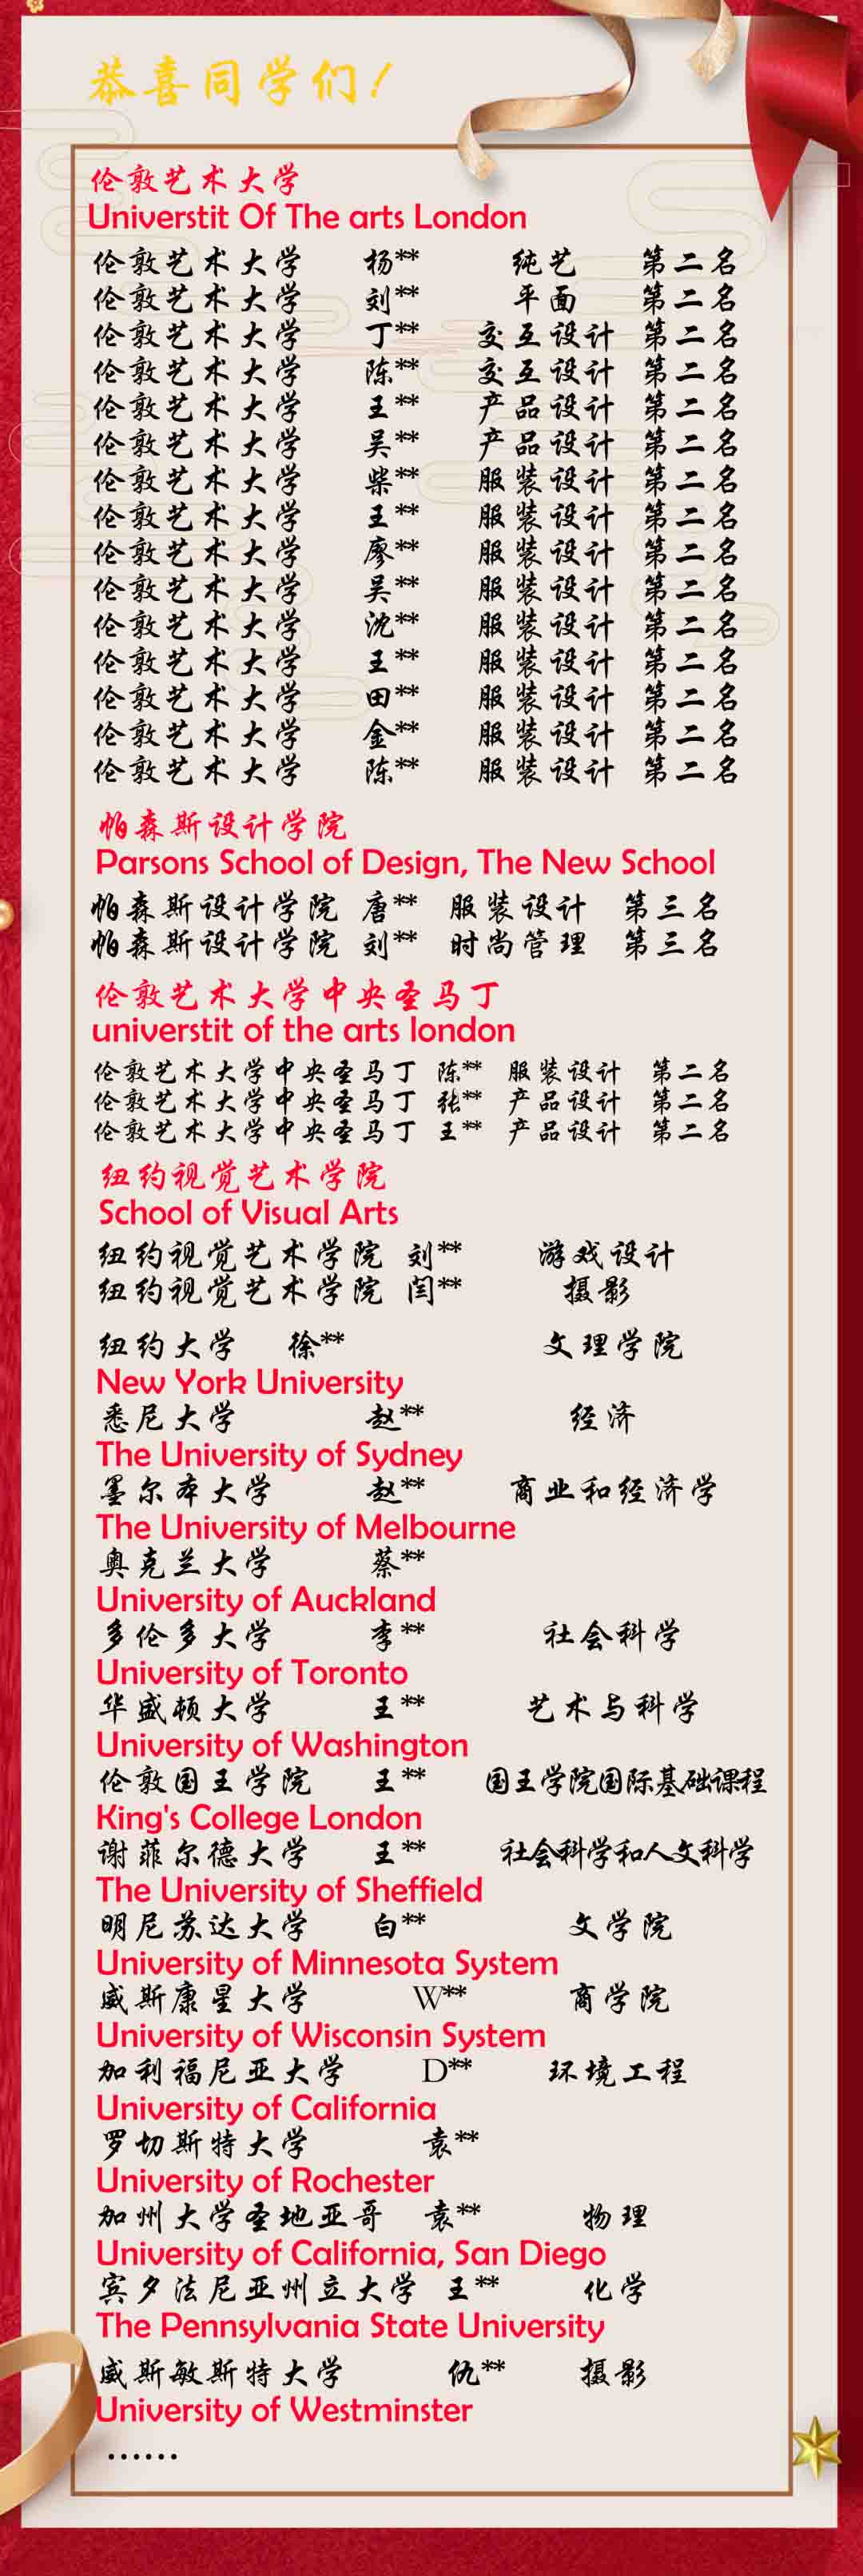 恭喜同学们！
伦敦艺术大学
Universtit Of The arts London
伦敦艺术大学 杨** 纯艺 第二名
伦敦艺术大学 刘** 平面 第二名
伦敦艺术大学 丁** 交互设计 第二名
伦敦艺术大学 陈** 交互设计 第二名
伦敦艺术大学 王** 产品设计 第二名
伦敦艺术大学 吴** 产品设计 第二名
伦敦艺术大学 柴** 服装设计 第二名
伦敦艺术大学 王** 服装设计 第二名
伦敦艺术大学 廖** 服装设计 第二名
伦敦艺术大学 吴** 服装设计 第二名
伦敦艺术大学 沈** 服装设计 第二名
伦敦艺术大学 王** 服装设计 第二名
伦敦艺术大学 田** 服装设计 第二名
伦敦艺术大学 金** 服装设计 第二名
伦敦艺术大学 陈** 服装设计 第二名
帕森斯设计学院
Parsons School of Design, The New School
帕森斯设计学院 唐** 服装设计 第三名
帕森斯设计学院 刘** 时尚管理 第三名
伦敦艺术大学中央圣马丁
universtit of the arts london
伦敦艺术大学中央圣马丁 陈** 服装设计 第二名
伦敦艺术大学中央圣马丁 张** 产品设计 第二名
伦敦艺术大学中央圣马丁 王** 产品设计 第二名
纽约视觉艺术学院
School of Visual Arts
纽约视觉艺术学院 刘** 游戏设计
纽约视觉艺术学院 闫** 摄影
纽约大学 徐** 文理学院
New York University
悉尼大学 赵** 经济
The University of Sydney
墨尔本大学 赵** 商业和经济学
The University of Melbourne
奥克兰大学 蔡**
University of Auckland
多伦多大学 李** 社会科学
University of Toronto
华盛顿大学 王** 艺术与科学
University of Washington
伦敦国王学院 王** 国王学院国际基础课程
King's College London
谢菲尔德大学 王** 社会科学和人文科学
The University of Sheffield
明尼苏达大学 白** 文学院
University of Minnesota System
威斯康星大学 W** 商学院
University of Wisconsin System
加利福尼亚大学 D** 环境工程
University of California
罗切斯特大学 袁**
University of Rochester
加州大学圣地亚哥 袁** 物理
University of California, San Diego
宾夕法尼亚州立大学 王** 化学
The Pennsylvania State University
威斯敏斯特大学 仇** 摄影
University of Westminster
······